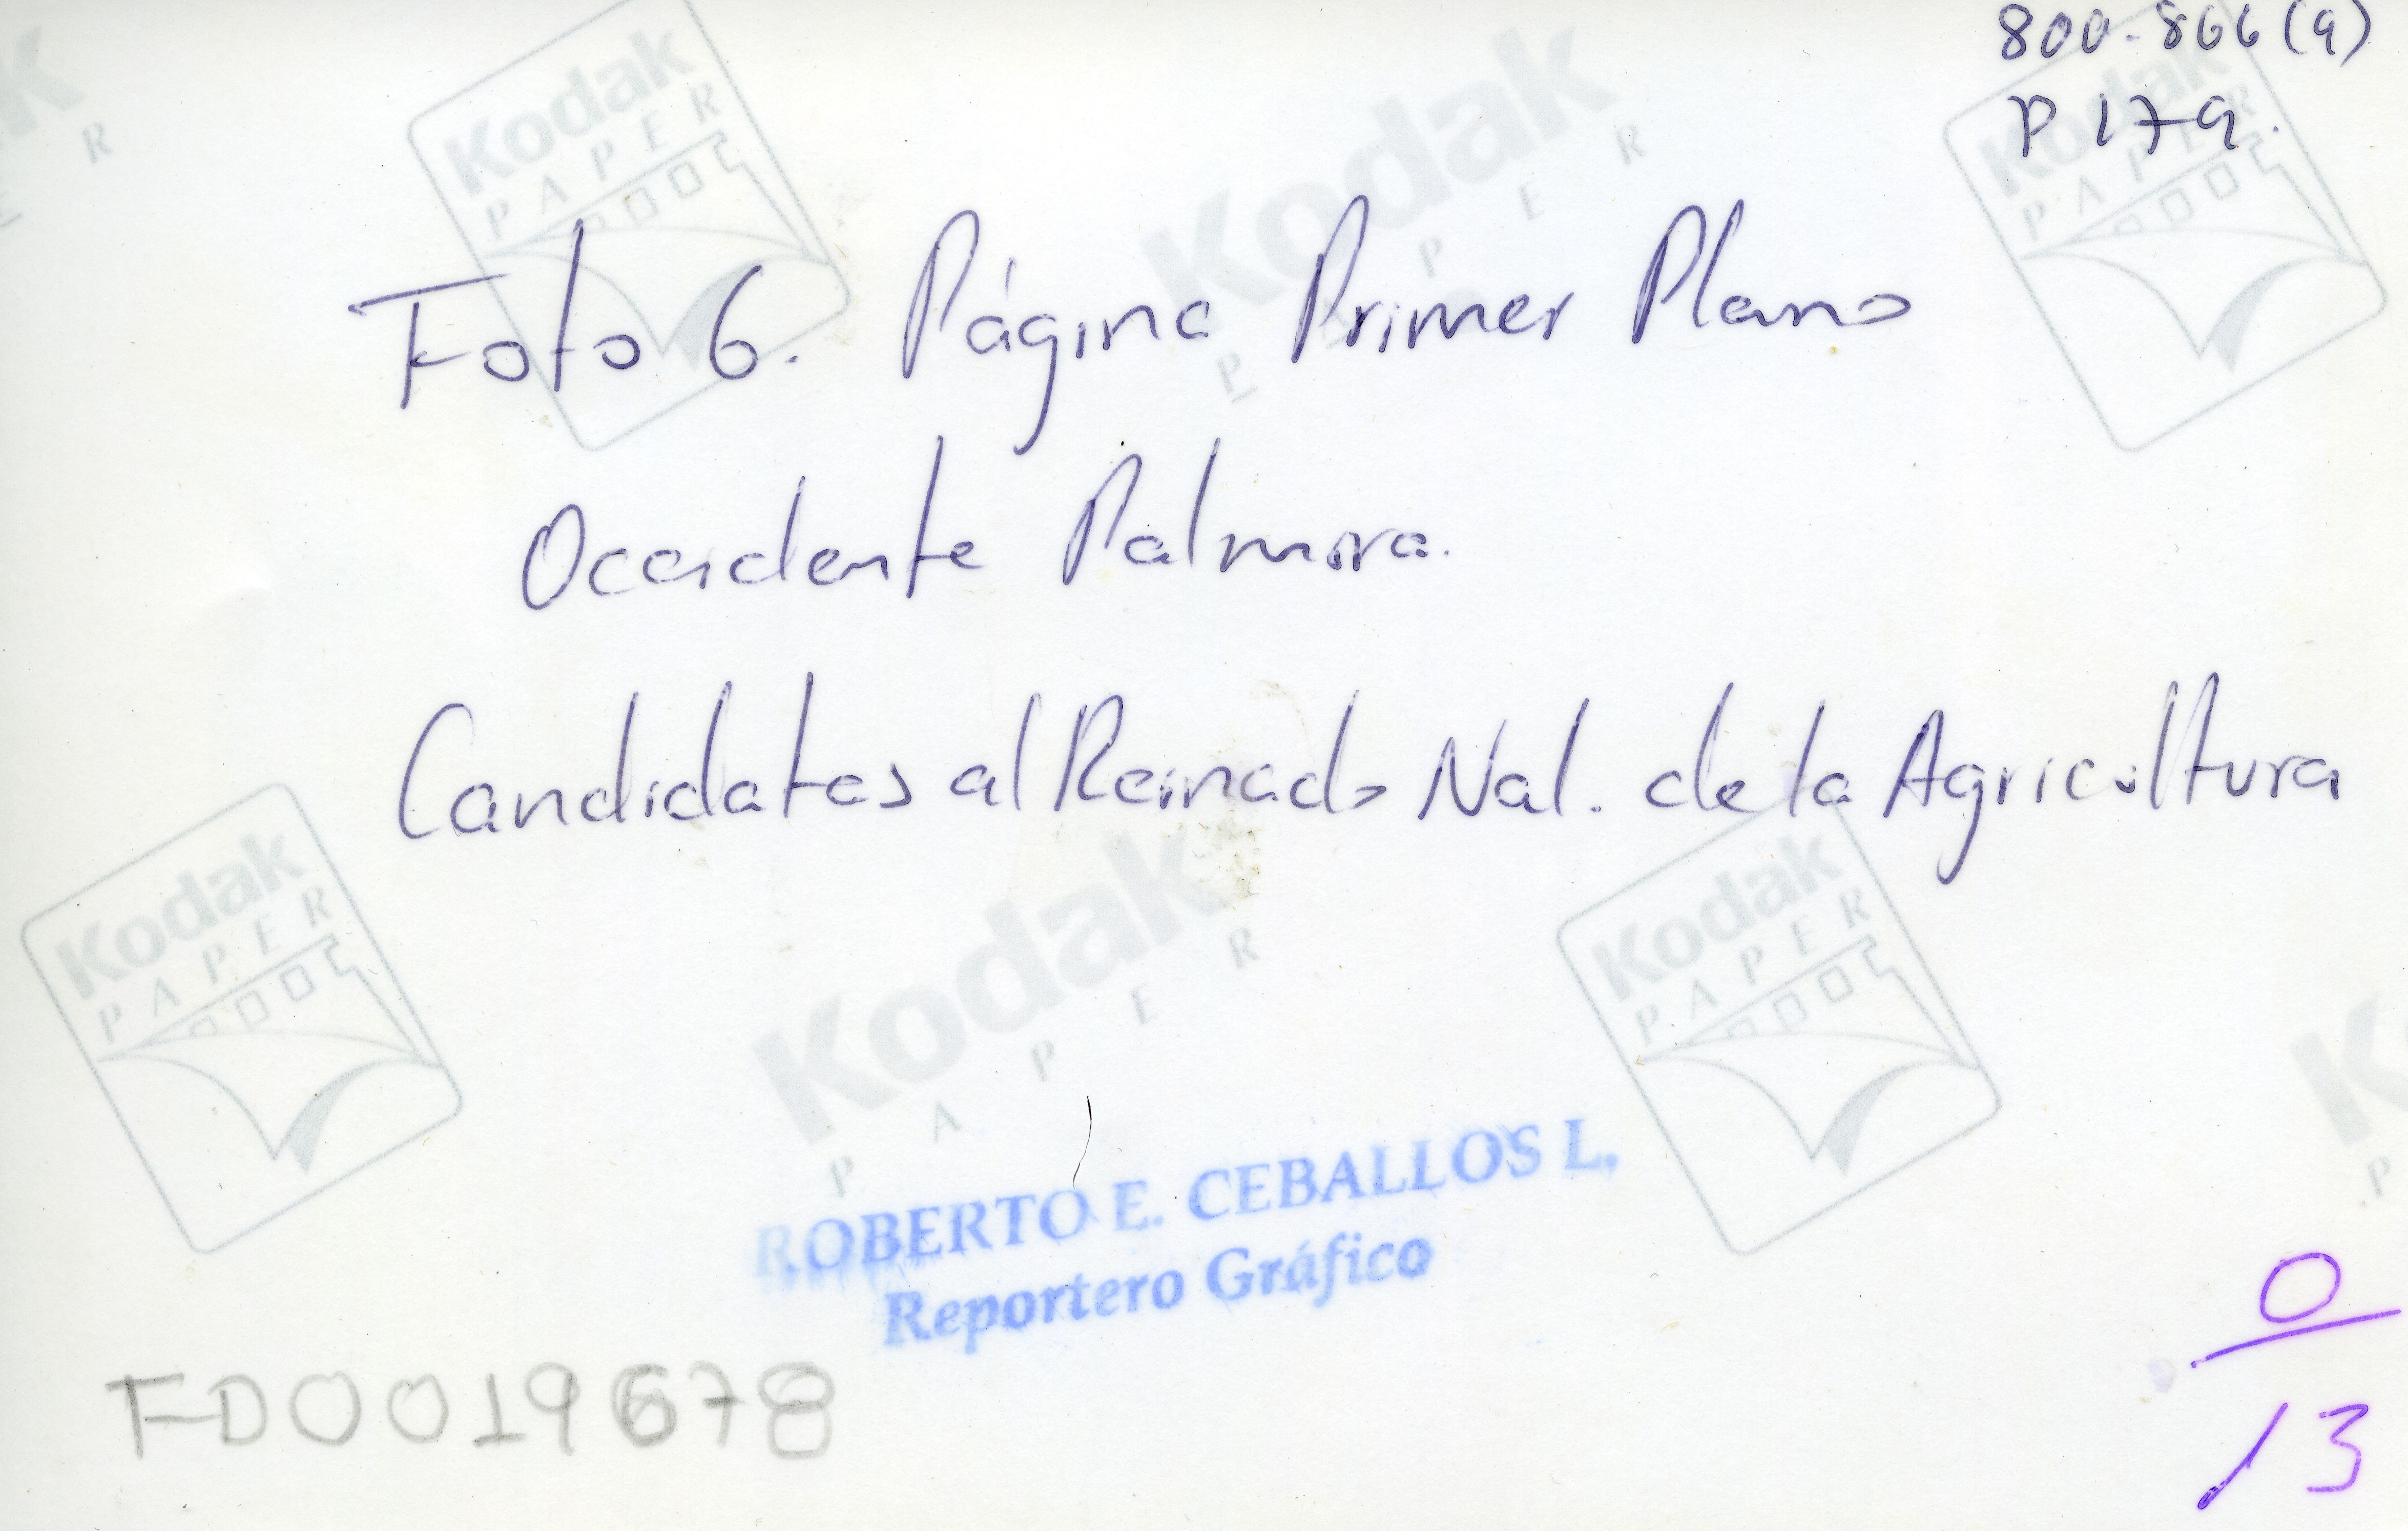 800-866(9)
P 179.
Foto 6. Página Primer Plano
Occidente Palmira.
Candidatas al Reinado Nal. de la Agricultura
Kodak
PAPER
ROBERTO E. CEBALLOS L.
Reportero Gráfico
FD0019678
0
13